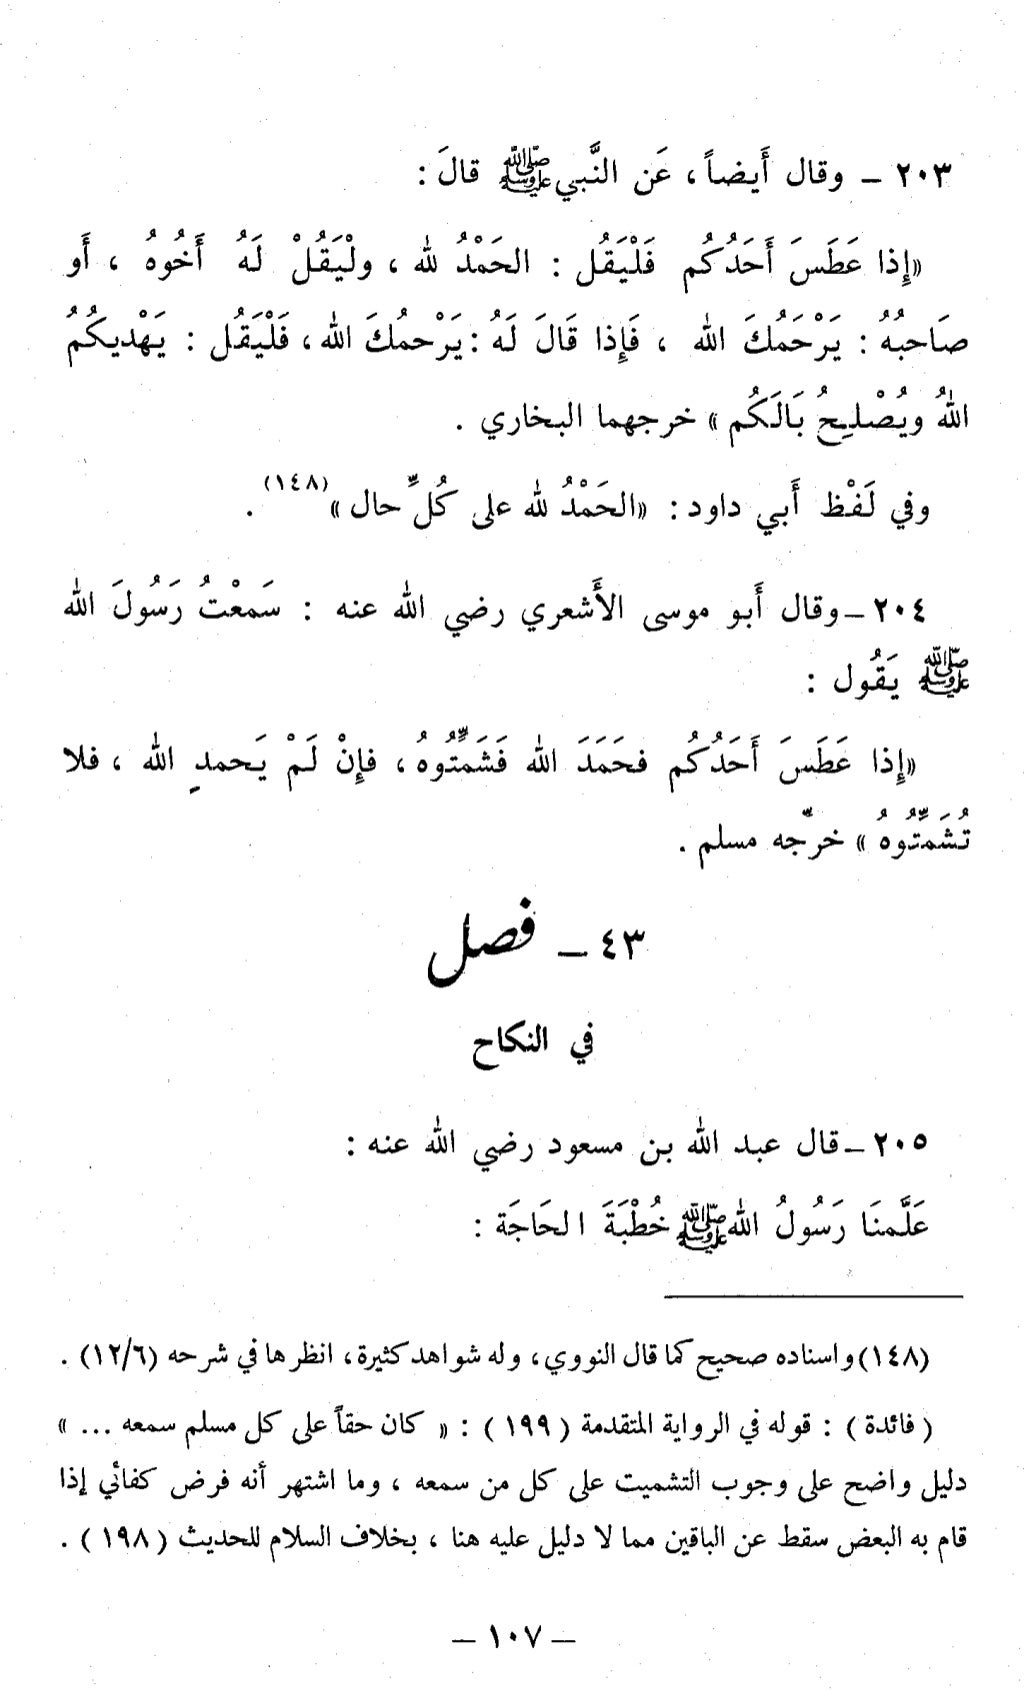 ٢٠٣ ـ وقال أَيضاً ، عَن النَّبي ﷺ قالَ :
«إِذا عَطَسَ أَحَدُكُم فَلْيَقُل : الحَمْدُ لله ، ولْيَقُلْ لَهُ أَخُوهُ ، أَو
صَاحبُهُ : يَرْحَمُكَ الله ، فَإِذا قَالَ لَهُ : يَرْحمُكَ الله ، فَلْيَقُل : يَهْديكُمُ
اللهُ ويُصْلِحُ بَالَكُم » خرجهما البخاري .
وفي لَفْظ أَبي داود : «الحَمْدُ لله على كُلِّ حال »(١٤٨) .
٢٠٤ ـ وقال أَبو موسى الأَشعري رضي الله عنه : سَمعْتُ رَسُولَ الله
ﷺ يَقُول :
«إِذا عَطَسَ أَحَدُكُم فحَمَدَ الله فَشَمِّتُوهُ ، فإِنْ لَمْ يَحمدِ الله ، فلا
تُشَمِّتُوهُ » خرّجه مسلم .
٤٣ ـ فصل
في النكاح
٢٠٥ ـ قال عبد الله بن مسعود رضي الله عنه :
عَلَّمنَا رَسُولُ الله ﷺ خُطْبَةَ الحَاجَة :
(١٤٨) واسناده صحيح كما قال النووي ، وله شواهد كثيرة ، انظرها في شرحه (١٢/٦) .
( فائدة ) : قوله في الرواية المتقدمة ( ١٩٩ ) : « كان حقاً على كل مسلم سمعه ... »
دليل واضح على وجوب التشميت على كل من سمعه ، وما اشتهر أنه فرض كفائي إذا
قام به البعض سقط عن الباقين مما لا دليل عليه هنا ، بخلاف السلام للحديث ( ١٩٨ ) .
ـ ١٠٧ ـ